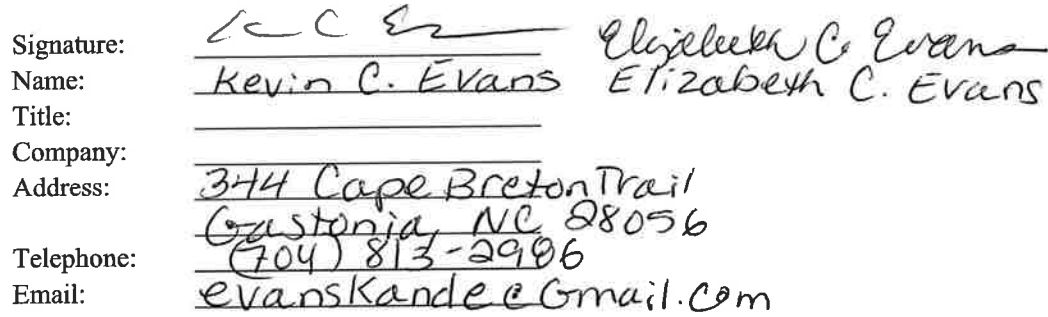 Signature: K C E Elizabeth C. Evans
Name: Kevin C. Evans Elizabeth C. Evans
Title:
Company:
Address: 344 Cape Breton Trail
Gastonia, NC 28056
Telephone: (704) 813-2986
Email: evanskande@Gmail.com